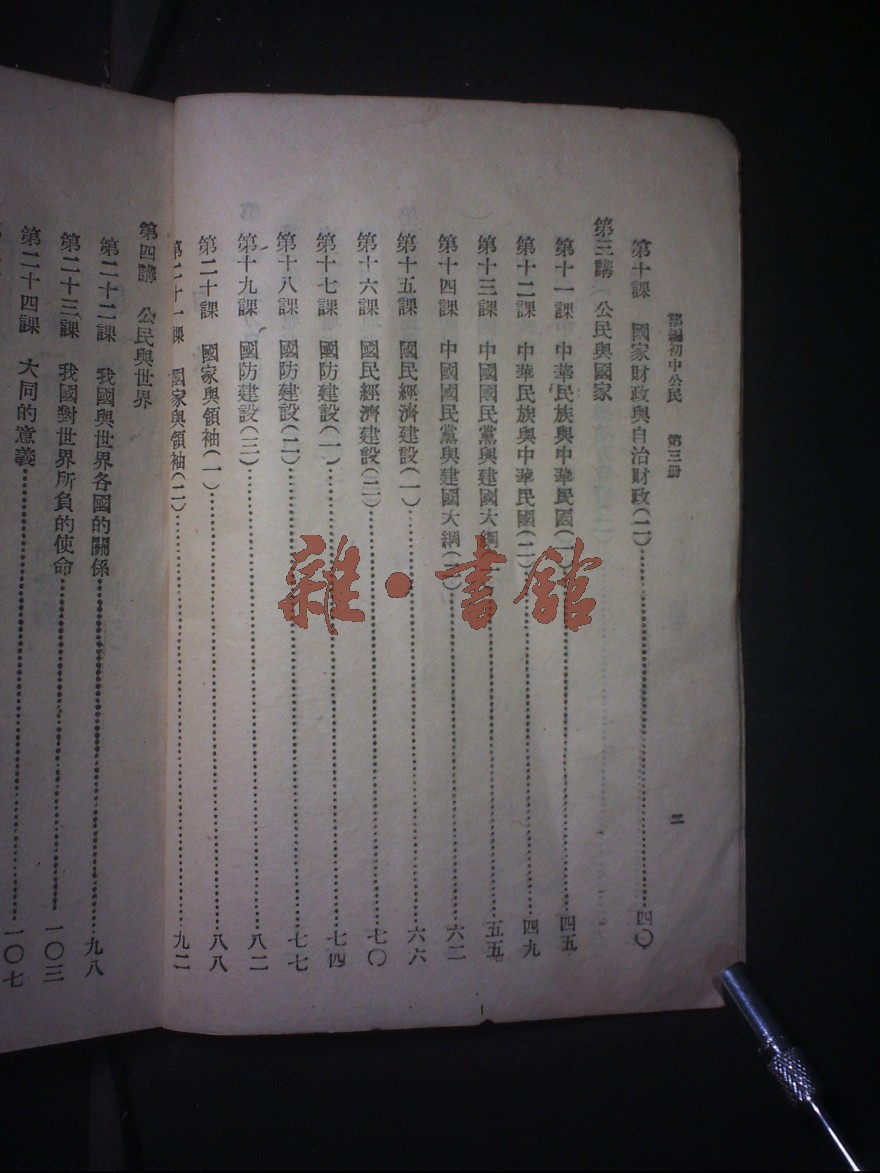 部編初中公民　第三册
二
第十課　國家財政與自治財政(二)……四〇
第三講　公民與國家
第十一課　中華民族與中華民國(一)……四五
第十二課　中華民族與中華民國(二)……四九
第十三課　中國國民黨與建國大綱……五五
第十四課　中國國民黨與建國大綱(二)……六二
第十五課　國民經濟建設(一)……六六
第十六課　國民經濟建設(二)……七〇
第十七課　國防建設(一)……七四
第十八課　國防建設(二)……七七
第十九課　國防建設(三)……八二
第二十課　國家與領袖(一)……八八
第二十一課　國家與領袖(二)……九二
第四講　公民與世界
第二十二課　我國與世界各國的關係……九八
第二十三課　我國對世界所負的使命……一〇三
第二十四課　大同的意義……一〇七
雜·書館